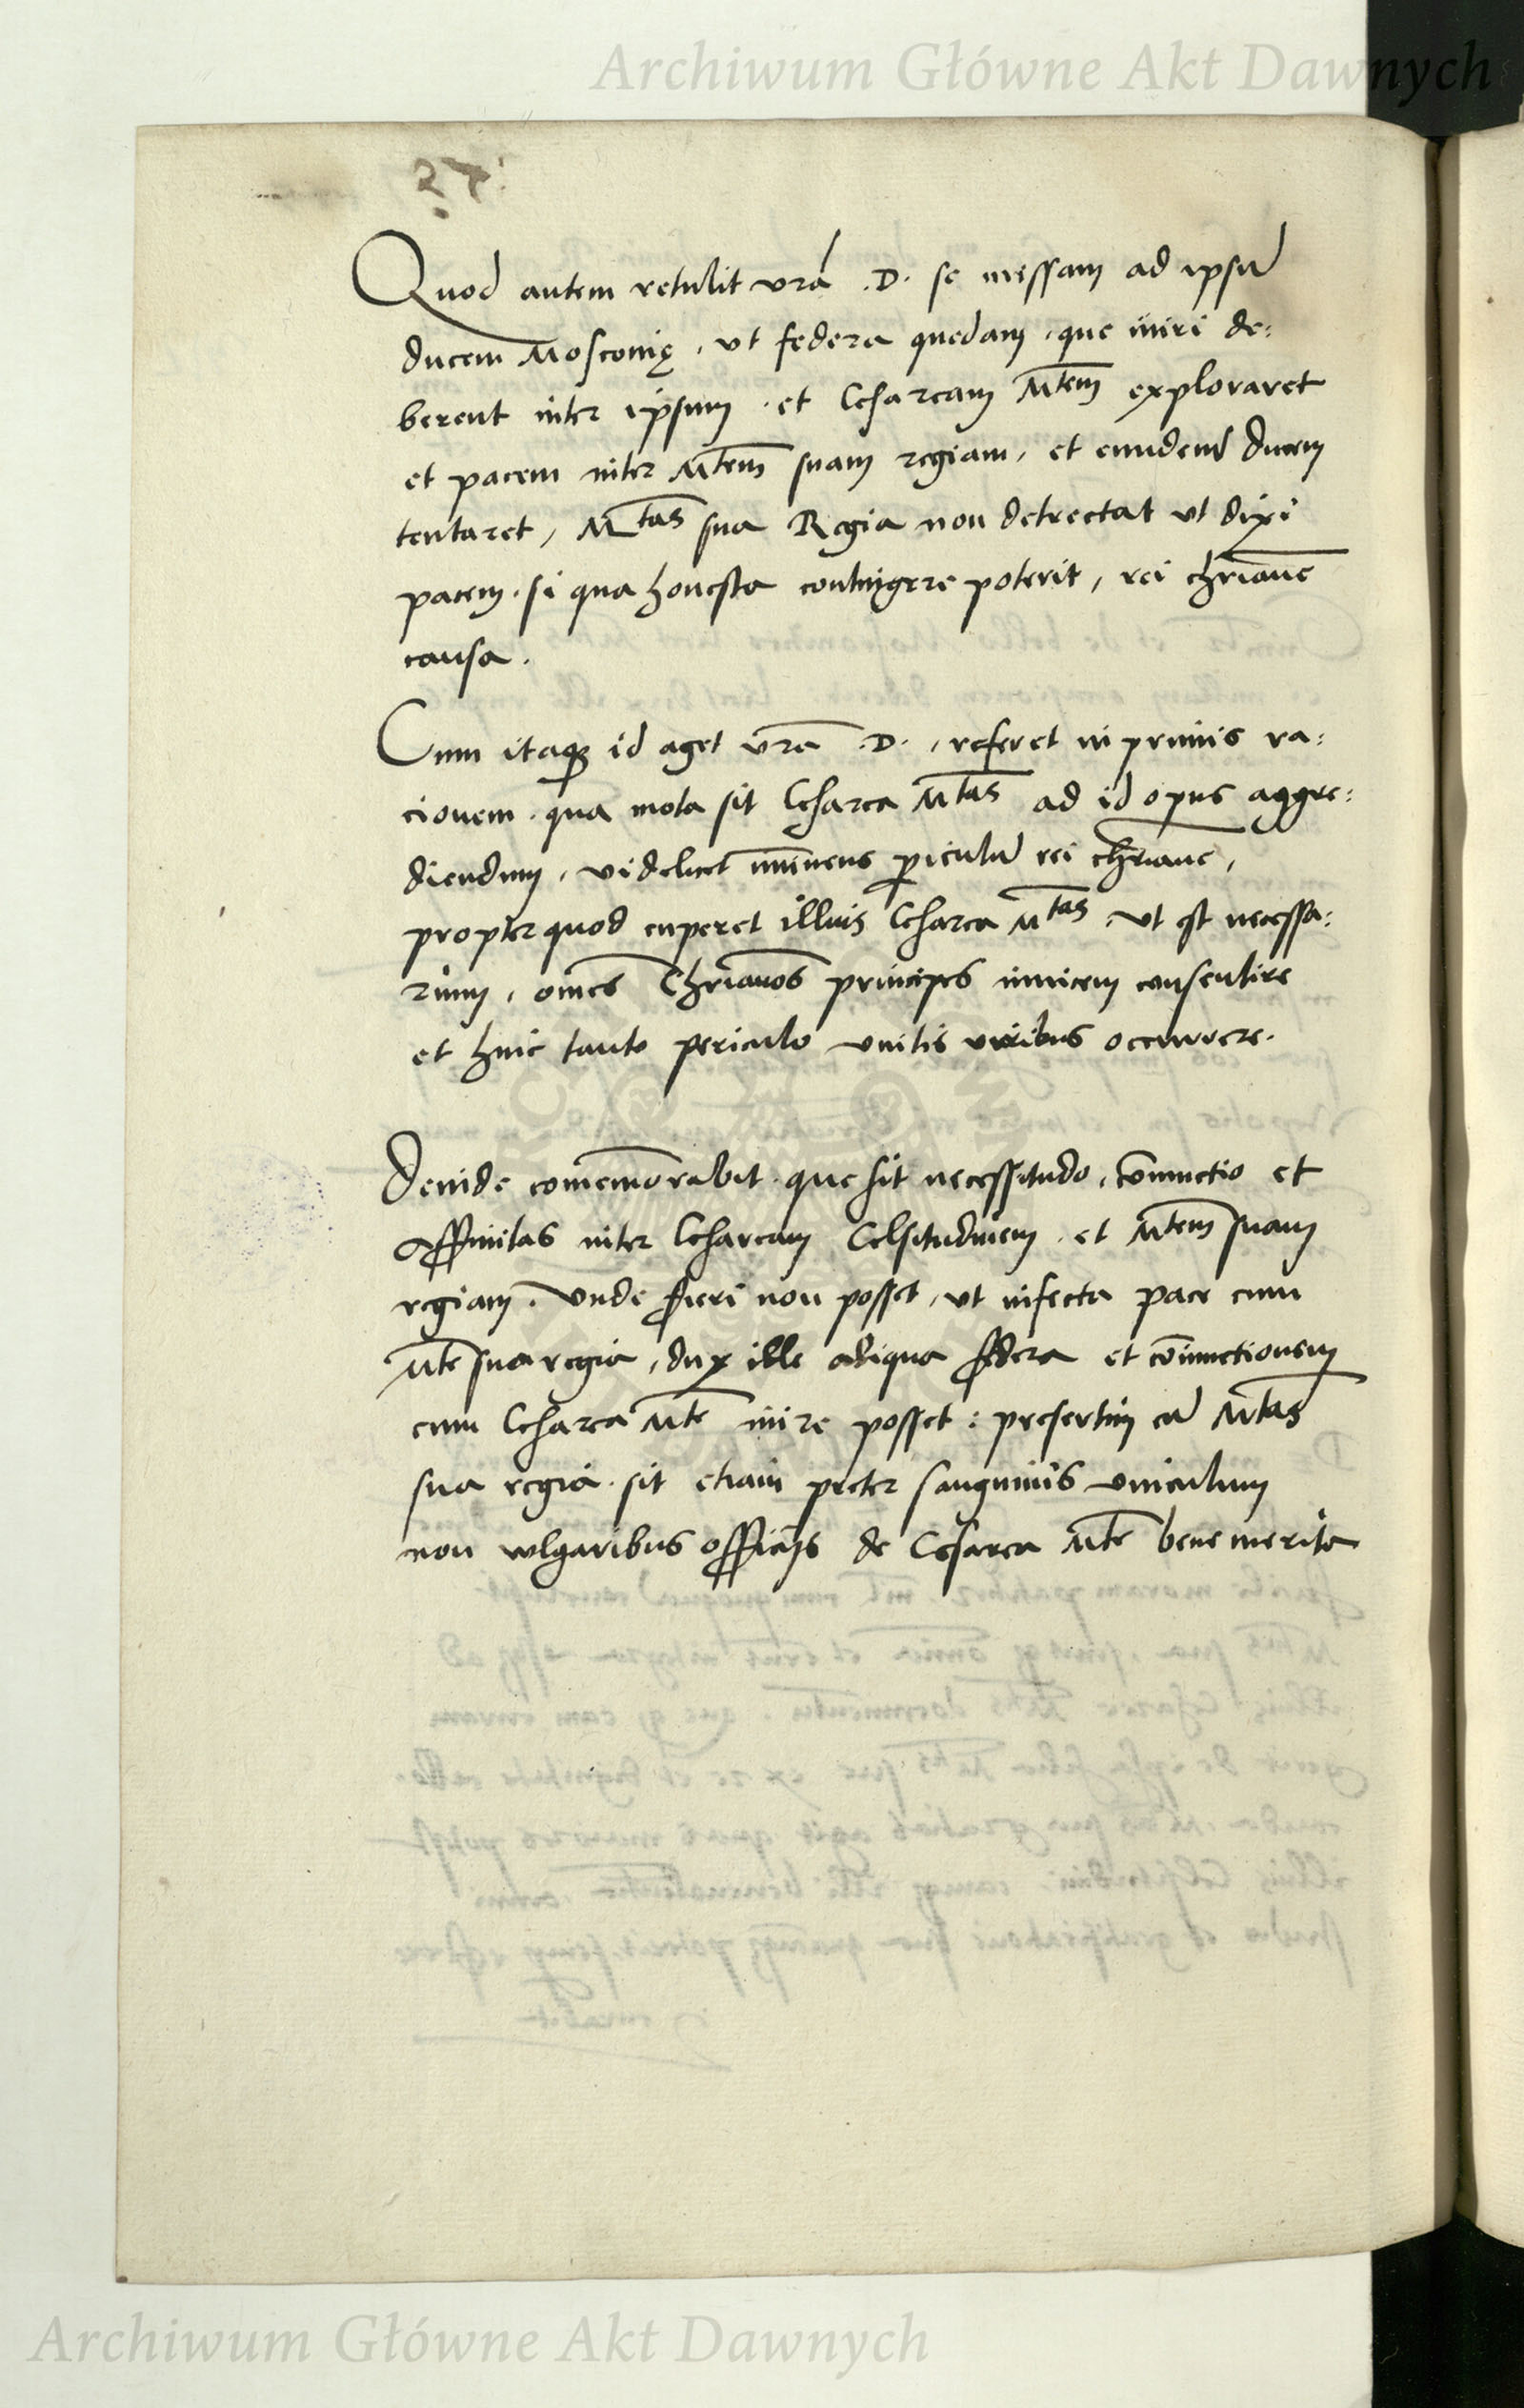 Archiwum Główne Akt Dawnych
27.
Quod autem retulit vrã .D. se missam ad ipsũ
ducem Moscouię, vt federa quedam, que iniri de:
berent inter ipsum, et Cesaream Mtem exploraret
et pacem inter Mtem suam regiam, et eundem Ducem
tentaret, Mtas sua Regia non detrectat vt dixi
pacem, si qua honesta contingere poterit, rei chrianẽ
causa.
Cum itaqꝫ id aget vrã .D., referet in primis ra:
cionem, qua mota sit Cesarea Mtas ad id opus aggre:
diendum, videlicet imminens ꝑiculũ rei chrianẽ,
propter quod cuperet illius Cesarea Mtas, vt est necessa:
rium, om̃es Chrianos principes inuicem consentire
et huic tanto periculo vnitis viribus occurrere.
Deinde com̃emorabit, que sit necessitudo, cõiunctio et
affinitas inter Cesaream Celsitudinem, et Mtem suam
regiam. Vnde fieri non posset, vt infecta pace cum
Mte sua regia, dux ille aliqua federa et cõiunctionem
cum Cesarea Mte inire posset: presertim cũ Mtas
sua regia, sit etiam preter sanguinis vinculum
non vulgaribus officijs de Cesarea Mte bene merita
Archiwum Główne Akt Dawnych